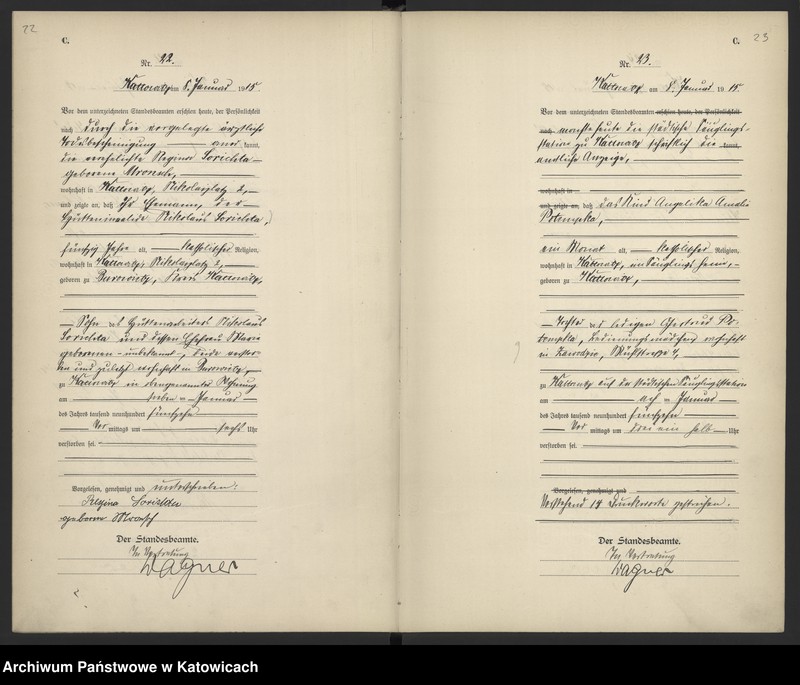 22
C.
Nr. 22.
Kattowitz am 8. Januar 1915
Vor dem unterzeichneten Standesbeamten erschien heute, der Persönlichkeit
nach durch die vorgelegte ärztliche
Todesbescheinigung anerkannt,
die verehelichte Regina
geborene
wohnhaft in Kattowitz, Nikolaiplatz 2,
und zeigte an, daß Ihr Ehemann, der
Hütteninvalide Nikolaus
fünfzig Jahre alt, katholischer Religion,
wohnhaft in Kattowitz, Nikolaiplatz 2,
geboren zu Kreis Kattowitz,
Sohn des Hüttenarbeiters Nikolaus
und dessen Ehefrau Maria
geborenen - unbekannt -, beide verstor-
ben und zuletzt wohnhaft in
zu Kattowitz in obengenannter Wohnung
am sieben ten Januar
des Jahres tausend neunhundert fünfzehn
Vor mittags um sechs Uhr
verstorben sei.
Vorgelesen, genehmigt und unterschrieben:
Regina
geborene
Der Standesbeamte.
In Vertretung
Wagner
23
C.
Nr. 23.
Kattowitz am 8. Januar 1915
Vor dem unterzeichneten Standesbeamten erschien heute, der Persönlichkeit
nach machte heute die städtische Säuglings-
station zu Kattowitz schriftlich die kannt,
amtliche Anzeige,
wohnhaft in
und zeigte an, daß das Kind Angelika Amalie
Potempka,
ein Monat alt, katholischer Religion,
wohnhaft in Kattowitz, im Säuglingsheim,
geboren zu Kattowitz,
Tochter der ledigen Gertrud Po-
tempka, Bedienungsmädchen, wohnhaft
in
zu Kattowitz auf der städtischen Säuglingsstation
am ach ten Januar
des Jahres tausend neunhundert fünfzehn
Vor mittags um drei ein halb Uhr
verstorben sei.
Vorgelesen, genehmigt und
Vorstehend 14 Druckworte gestrichen.
Der Standesbeamte.
In Vertretung
Wagner
Archiwum Państwowe w Katowicach